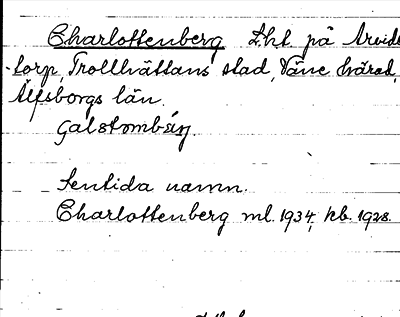 Charlottenberg Lht. på Arvids-
torp, Trollhättans stad, Väne härad,
Älfsborgs län.
Galstombäng.
Sentida namn.
Charlottenberg ml. 1934, kb. 1928.